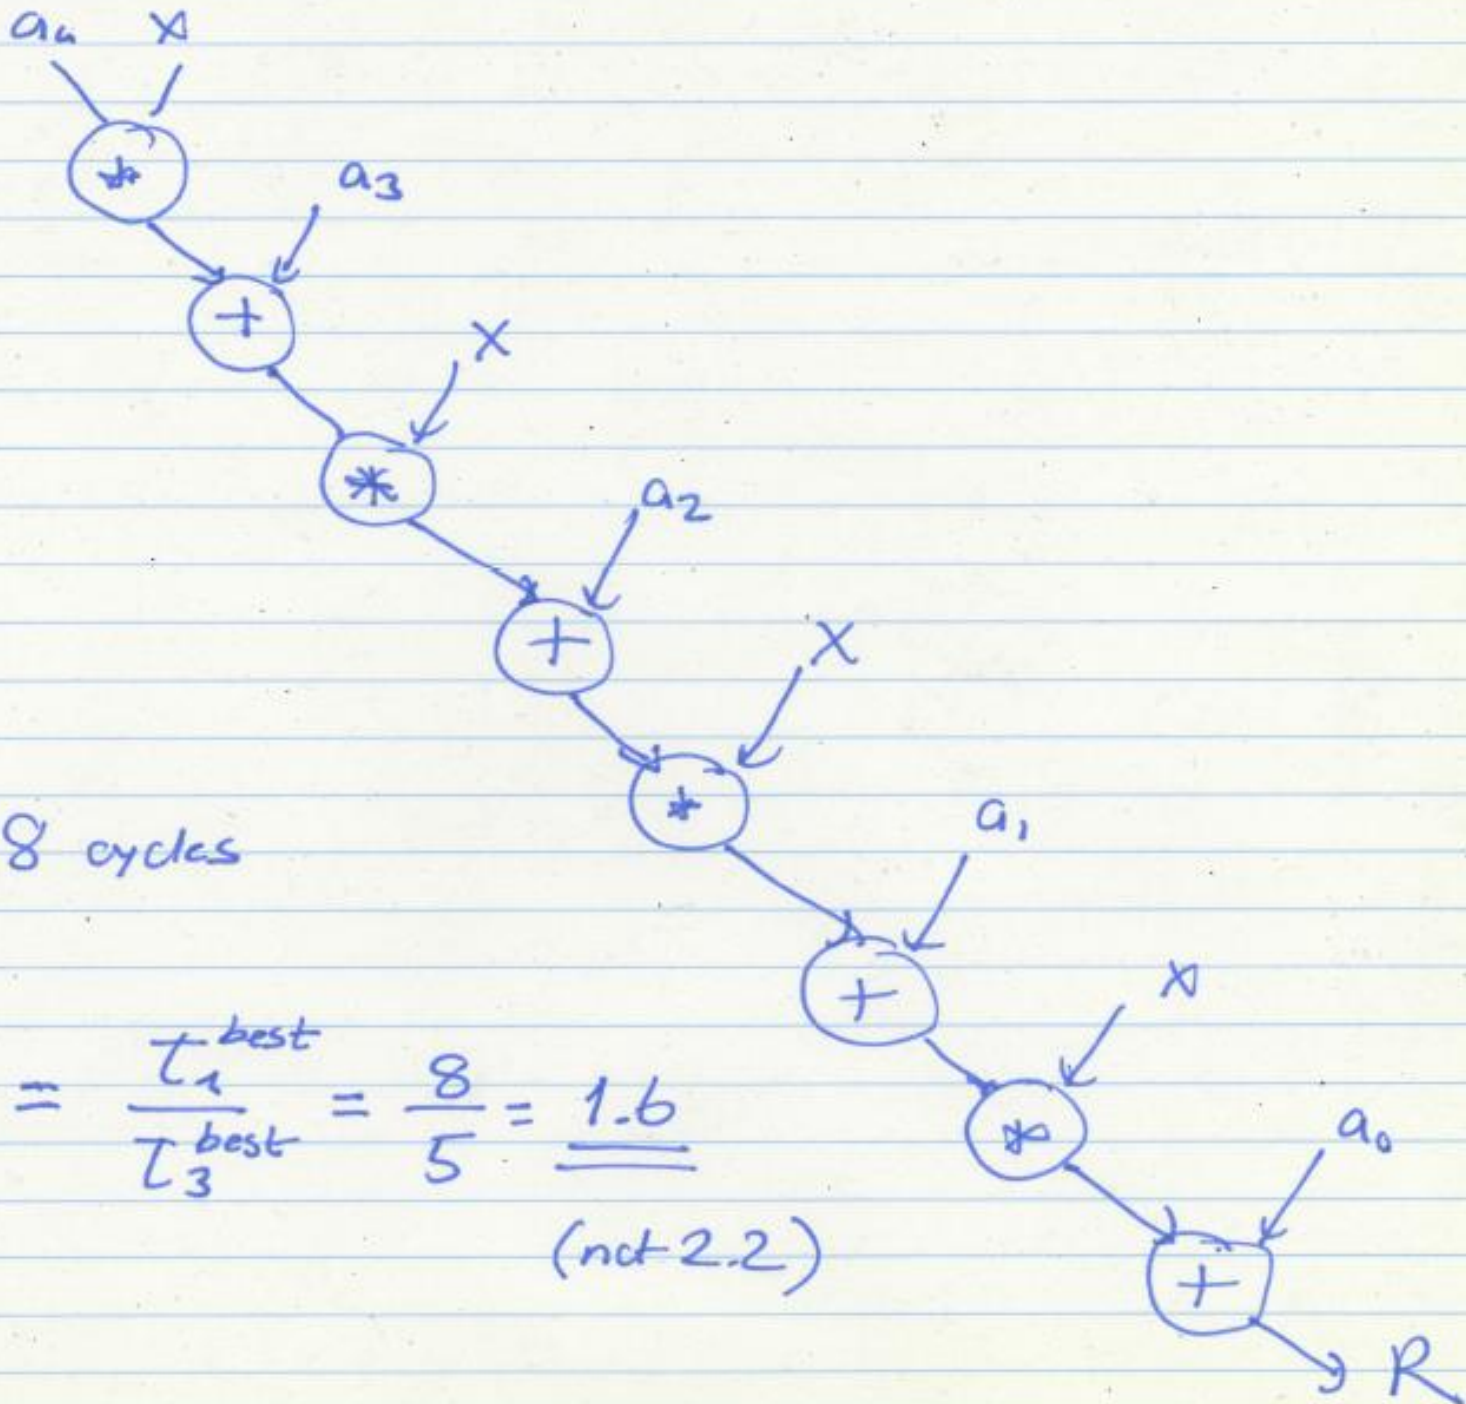 a₄ x
*
a₃
+
x
*
a₂
+
x
*
8 cycles
a₁
+
x
= T₁^best / T₃^best = 8/5 = 1.6
*
a₀
(not 2.2)
+
R